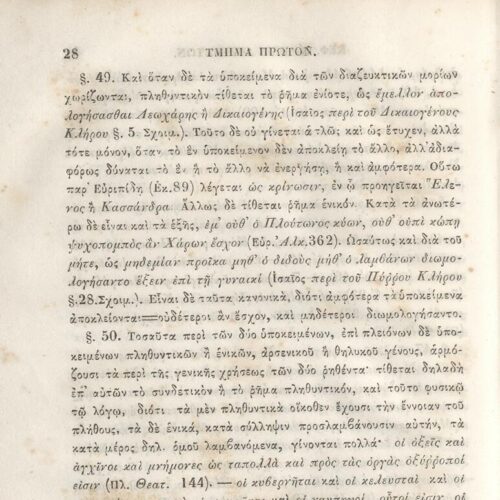 28 ΤΜΗΜΑ ΠΡΩΤΟΝ.
§. 49. Καὶ ὅταν δὲ τὰ ὑποκείμενα διὰ τῶν διαζευκτικῶν μορίων
χωρίζωνται, πληθυντικὸν τίθεται τὸ ῥῆμα ἐνίοτε, ὡς ἔμελλον ἀπο-
λογήσασθαι Λεωχάρης ἢ Δικαιογένης (Ἰσαῖος περὶ τοῦ Δικαιογένους
Κλήρου §. 5. Σχοιμ.). Τοῦτο δὲ οὐ γίνεται ἁπλῶς καὶ ὡς ἔτυχεν, ἀλλὰ
τότε μόνον, ὅταν τὸ ἓν ὑποκείμενον δὲν ἀποκλείῃ τὸ ἄλλο, ἀλλ' ἀδια-
φόρως δύναται τὸ ἓν ἢ τὸ ἄλλο νὰ ἐνεργήσῃ, ἢ καὶ ἀμφότερα. Οὕτω
παρ' Εὐριπίδῃ (Ἑκ. 89) λέγεται ὡς κρίνωσιν, ἐν ᾧ προηγεῖται Ἕλε-
νος ἢ Κασσάνδρα. Ἄλλως δὲ τίθεται ῥῆμα ἑνικόν. Κατὰ τὰ ἀνωτέ-
ρω δὲ εἶναι καὶ τὰ ἑξῆς, ἐμ' οὔθ' ὁ Πλούτωνος κύων, οὔθ' οὑπὶ κώπῃ
ψυχοπομπὸς ἂν Χάρων ἔσχον (Εὐρ. Ἀλκ. 362). Ὡσαύτως καὶ διὰ τοῦ
μήτε, ὡς μηδεμίαν προῖκα μήθ' ὁ διδοὺς μήθ' ὁ λαμβάνων διωμο-
λογήσαντο ἕξειν ἐπὶ τῇ γυναικί (Ἰσαῖος περὶ τοῦ Πύρρου Κλήρου
§. 28. Σχοιμ.). Εἶναι δὲ ταῦτα κανονικά, διότι ἀμφότερα τὰ ὑποκείμενα
ἀποκλείονται=οὐδέτεροι ἂν ἔσχον, καὶ μηδέτεροι διωμολογήσαντο.
§. 50. Τοσαῦτα περὶ τῶν δύο ὑποκειμένων, ἐπὶ πλειόνων δὲ ὑπο-
κειμένων πληθυντικῶν ἢ ἑνικῶν, ἀρσενικοῦ ἢ θηλυκοῦ γένους, ἁρμό-
ζουσι τὰ περὶ τῆς γενικῆς χρήσεως τῶν δύο ῥηθέντα· τίθεται δηλαδὴ
ἐπ' αὐτῶν τὸ συνδετικὸν ἢ τὸ ῥῆμα πληθυντικόν, καὶ τοῦτο φυσικῷ
τῷ λόγῳ, διότι τὰ μὲν πληθυντικὰ οἴκοθεν ἔχουσι τὴν ἔννοιαν τοῦ
πλήθους, τὰ δὲ ἑνικά, κατὰ σύλληψιν προσλαμβάνουσιν αὐτήν, τὰ
κατὰ μέρος δηλ. ὁμοῦ λαμβανόμενα, γίνονται πολλά· οἱ ὀξεῖς καὶ
ἀγχίνοι καὶ μνήμονες ὡς ταπολλὰ καὶ πρὸς τὰς ὀργὰς ὀξύρροποί
εἰσιν (Πλ. Θεατ. 144).— οἱ κυβερνῆται καὶ οἱ κελευσταὶ καὶ οἱ